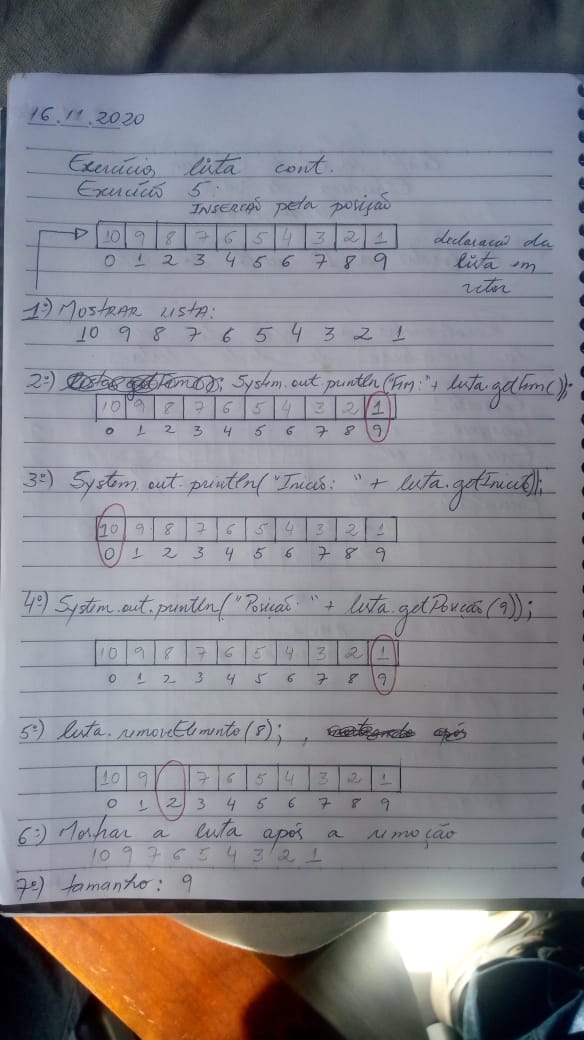 16.11.2020
Exercícios lista cont.
Exercício 5:
INSERÇÃO pela posição
10 9 8 7 6 5 4 3 2 1 declaração da
0 1 2 3 4 5 6 7 8 9 lista em
vetor
1º) MOSTRAR LISTA:
10 9 8 7 6 5 4 3 2 1
2º) System.out.println("Fim:"+ lista.getFim());
10 9 8 7 6 5 4 3 2 1
0 1 2 3 4 5 6 7 8 9
3º) System.out.println("Início: " + lista.getInicio());
10 9 8 7 6 5 4 3 2 1
0 1 2 3 4 5 6 7 8 9
4º) System.out.println("Posição: " + lista.getPosição(9));
10 9 8 7 6 5 4 3 2 1
0 1 2 3 4 5 6 7 8 9
5º) lista.removeElemento(8); , após
10 9 7 6 5 4 3 2 1
0 1 2 3 4 5 6 7 8 9
6º) Mostrar a lista após a remoção
10 9 7 6 5 4 3 2 1
7º) tamanho: 9